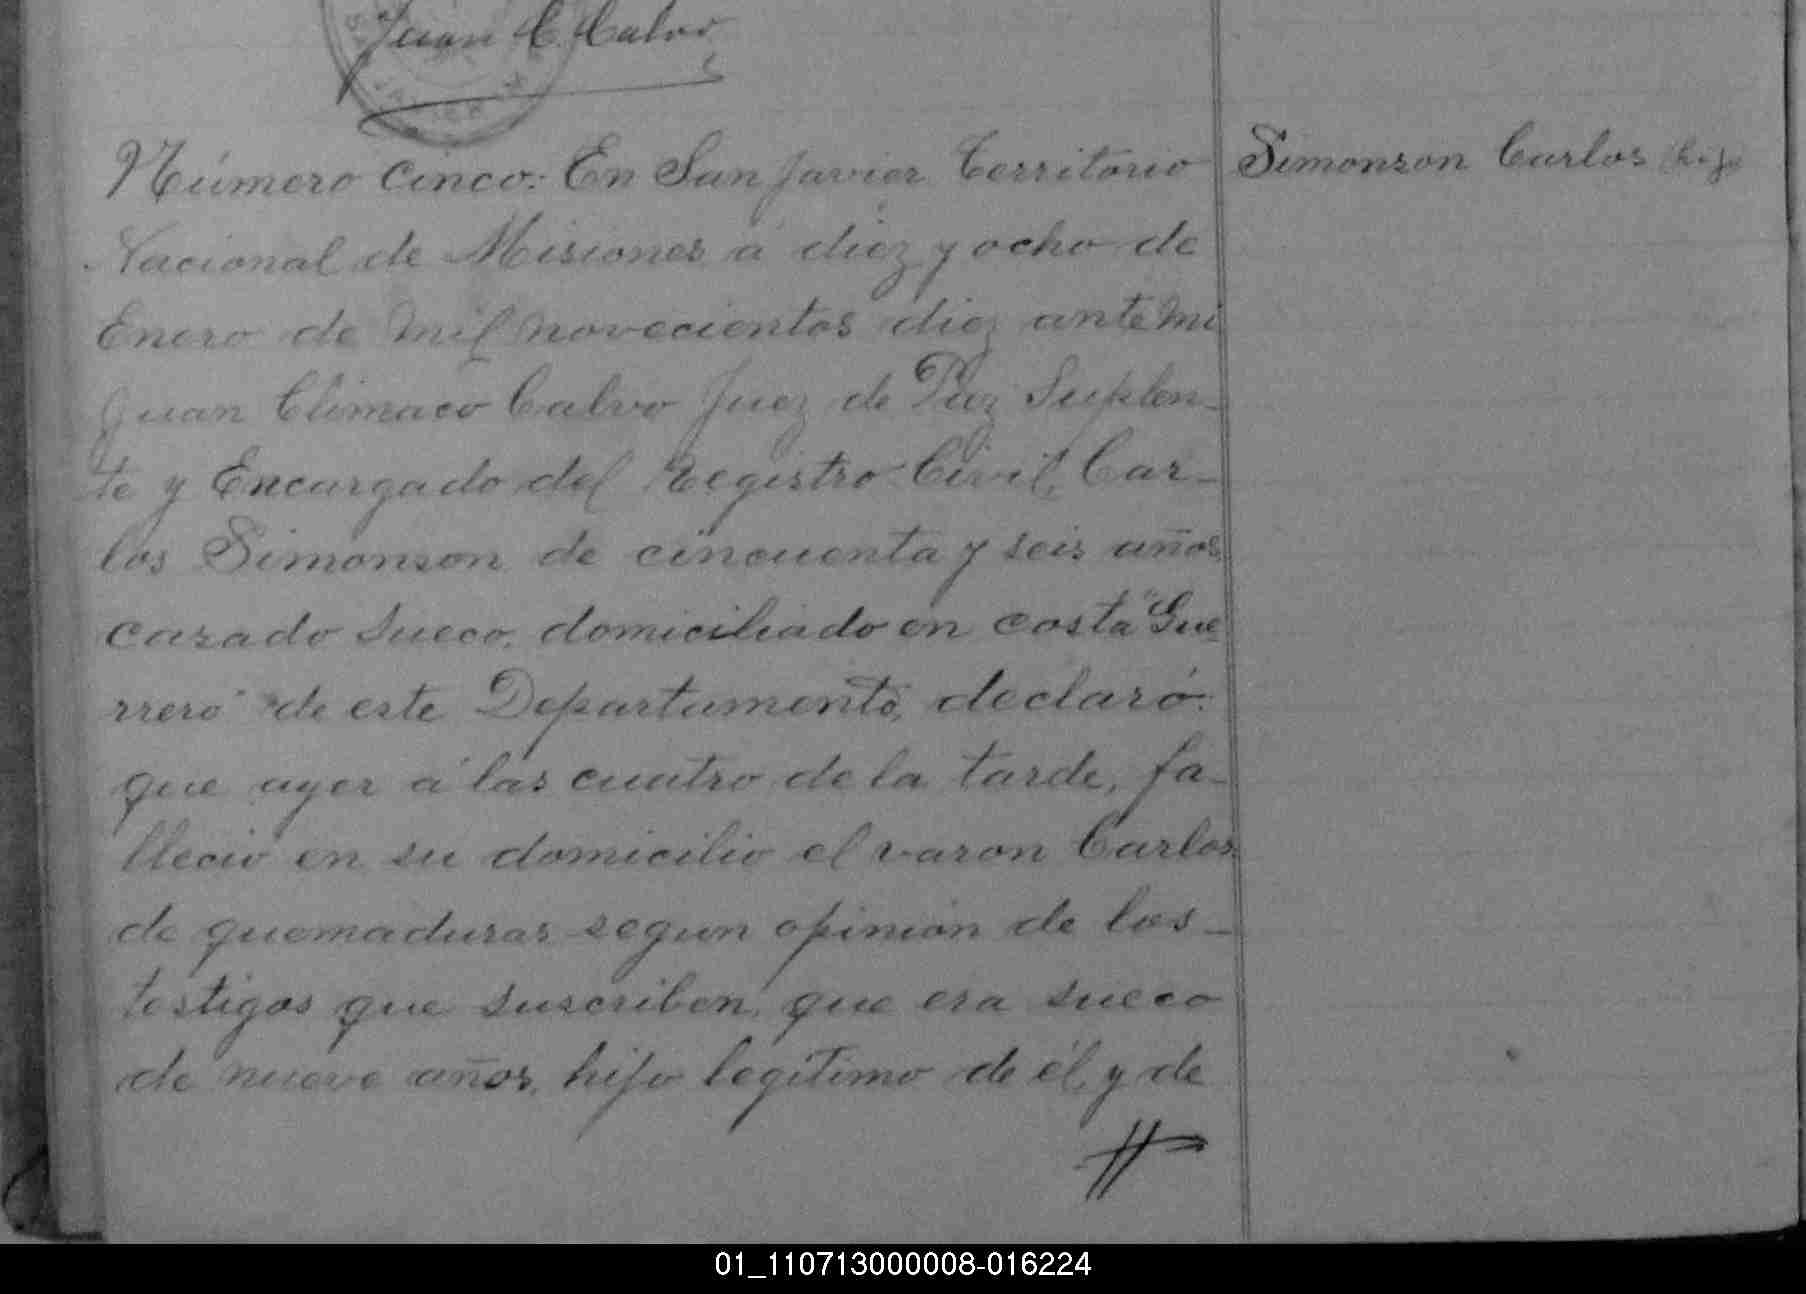 Juan C. Calvo
Número cinco: En San Javier Territorio
Nacional de Misiones á diez y ocho de
Enero de mil novecientos diez ante mi
Juan Climaco Calvo Juez de Paz Suplen-
te y Encargado del Registro Civil, Car-
los Simonson de cincuenta y seis años,
casado sueco, domiciliado en costa "Gue
rrero" de este Departamento, declaró:
que ayer á las cuatro de la tarde, fa-
lleció en su domicilio el varon Carlos
de quemaduras segun opinión de los -
testigos que suscriben, que era sueco
de nueve años, hijo legítimo de él, y de
Simonson Carlos hijo
01_110713000008-016224